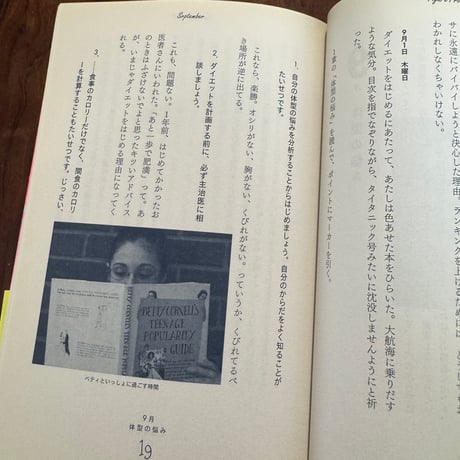 サに永遠にバイバイしようと決心した理由。ランキングを上げるためには、
わかれしなくちゃいけない。
9月1日 木曜日
ダイエットをはじめるにあたって、あたしは色あせた本をひらいた。大航海に乗りだす
ような気分。目次を指でなぞりながら、タイタニック号みたいに沈没しませんようにと祈
った。
1章の“体型の悩み”を読んで、ポイントにマーカーを引く。
September
1、自分の体型の悩みを分析することからはじめましょう。自分のからだをよく知ることが
たいせつです。
これなら、楽勝。オシリがない、胸がない、くびれがない。っていうか、くびれてるべ
き場所が逆に出てる。
2、ダイエットを計画する前に、必ず主治医に相
談しましょう。
これも、問題ない。1年前、はじめてかかったお
医者さんにいわれた。「あと一歩で肥満」って。あ
のときはふざけないでよと思ったキツいアドバイス
が、いまじゃダイエットをはじめる理由になってく
れる。
3、――食事のカロリーだけでなく、間食のカロリ
ーを計算することもたいせつです。じっさい、
BETTY CORNELL'S
TEENAGE
POPULARITY
GUIDE
BETTY CORNELL'S TEENAGE POPULARITY GUIDE
ベティといっしょに過ごす時間
9月
体型の悩み
19